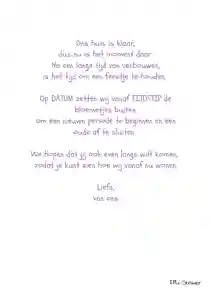 Ons huis is klaar,
dus nu is het moment daar.
Na een lange tijd van verbouwen,
is het tijd om een feestje te houden.
Op DATUM zetten wij vanaf TIJDSTIP de
bloemetjes buiten
om een nieuwe periode te beginnen en een
oude af te sluiten.
We hopen dat jij ook even langs wilt komen,
zodat je kunt zien hoe wij vanaf nu wonen.
Liefs,
van ons